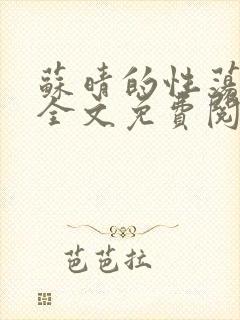 蘇晴的性蕩
全文免費閱
芭芭拉